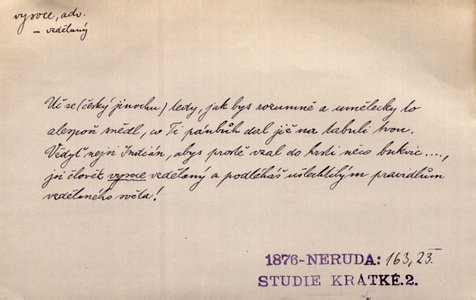 vysoce, adv.
– vzdělaný
Uč se (český jinochu) tedy, jak bys rozumně a umělecky to
alespoň snědl, co Ti pánbůh dal již na tabuli tvou.
Vždyť nejsi Indián, abys prostě vzal do hrsti něco bukvic ....,
jsi člověk vysoce vzdělaný a podléháš ušlechtilým pravidlům
vzdělaného světa!
1876-NERUDA: 163, 23.
STUDIE KRÁTKÉ.2.